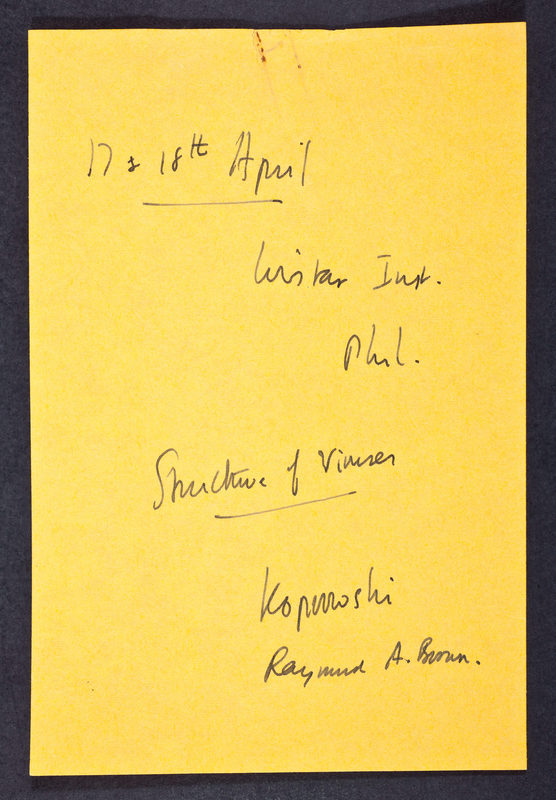 17 & 18th April
Wistar Inst.
Phil.
Structure of Viruses
Koprowski
Raymund A. Brown.